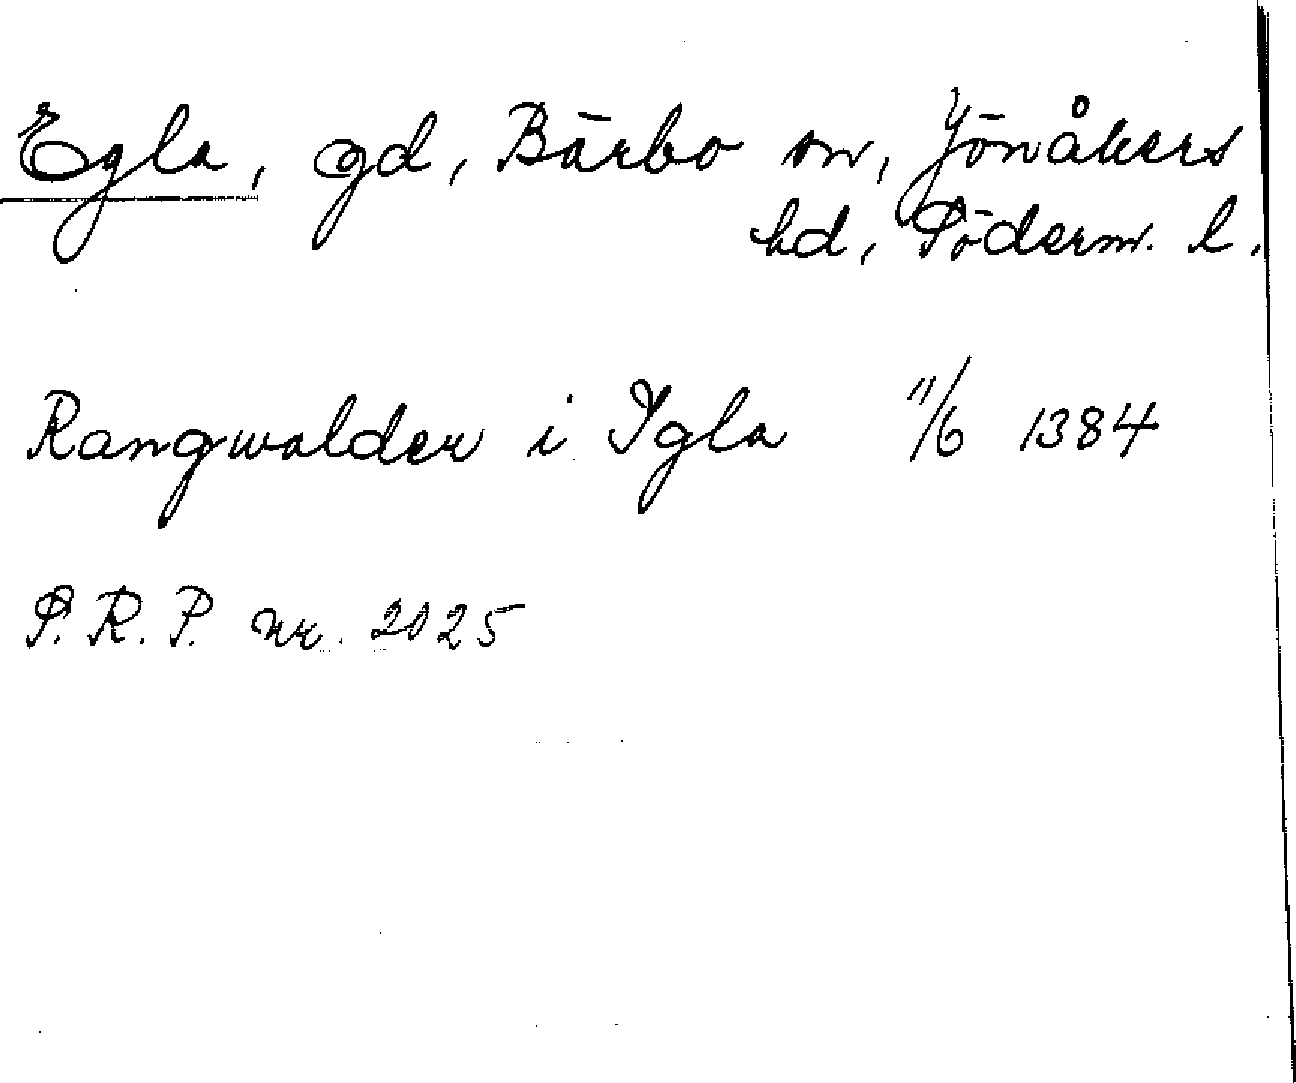 Egla, gd, Bärbo sn, Jönåkers
hd, Söderm. l.
Rangwalder i Ygla 11/6 1384
S.R.P. nr. 2025